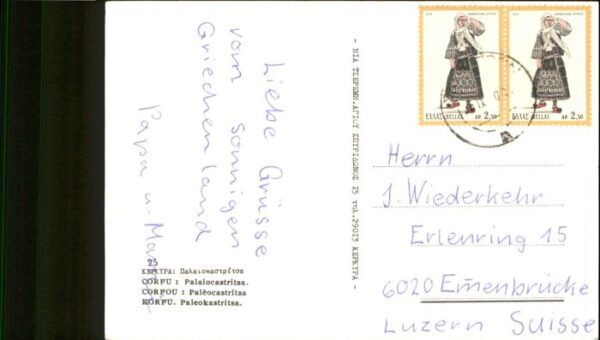 Liebe Grüsse
vom sonnigen
Griechenland
Papa u. Mama
25
ΚΕΡΚΥΡΑ: Παλαιοκαστρίτσα
CORFU : Palaiocastritsa.
CORFOU : Palèocastritsa
KORFU. Paleokastritsa.
- ΝΙΑ ΤΣΕΡΕΜΗ.ΑΓΙΟΥ ΣΠΥΡΙΔΩΝΟΣ 15 τηλ.29013 ΚΕΡΚΥΡΑ -
ΕΛΛΑΣ-HELLAS ΔΡ 2,50
ΕΛΛΑΣ-HELLAS ΔΡ 2,50
Herrn
J. Wiederkehr
Erlenring 15
6020 Emmenbrücke
Luzern Suisse